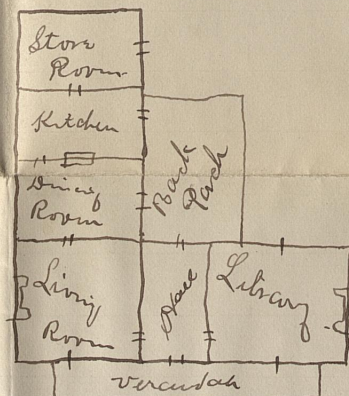 Store
Room
Kitchen
Dining
Room
Back
Porch
Living
Room
Hall
Library
Verandah